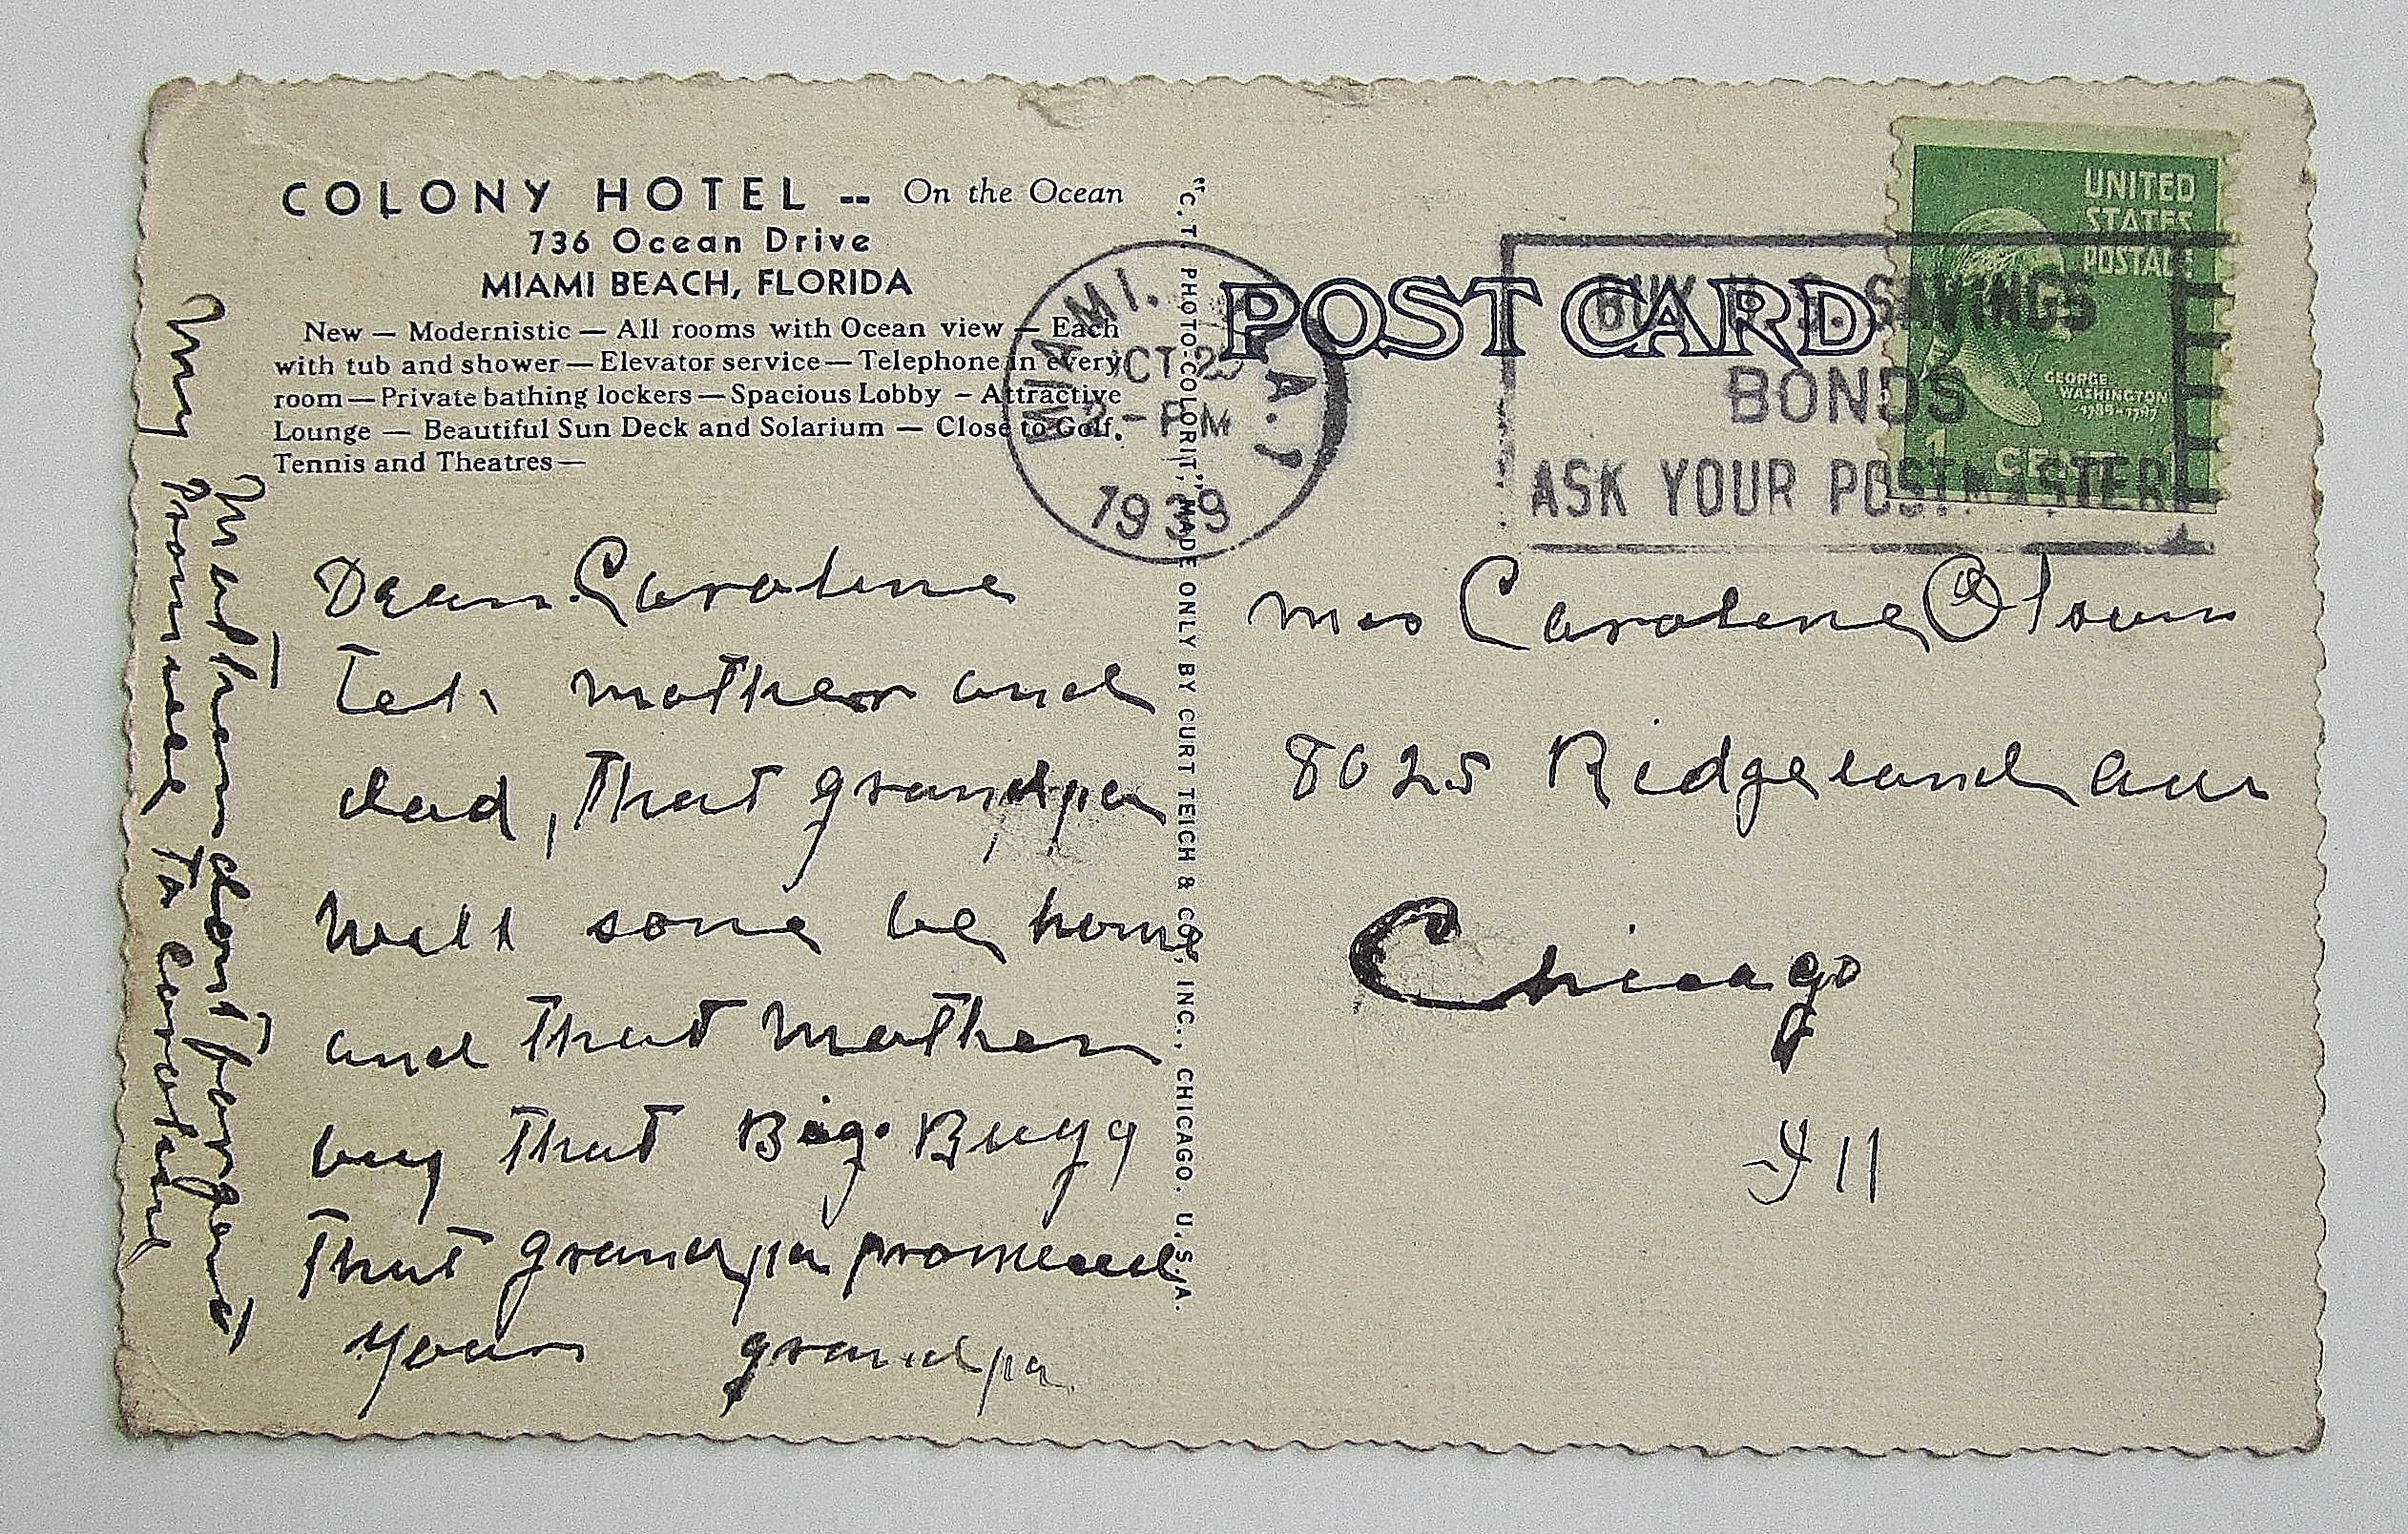 COLONY HOTEL -- On the Ocean
736 Ocean Drive
MIAMI BEACH, FLORIDA
New — Modernistic — All rooms with Ocean view — Each
with tub and shower — Elevator service — Telephone in every
room — Private bathing lockers — Spacious Lobby — Attractive
Lounge — Beautiful Sun Deck and Solarium — Close to Golf,
Tennis and Theatres —
Dear Caroline
Tell mother and
dad, that grandpa
will sone be home
and that mother
buy that Big Bugg
that grandpa promised
your grandpa
mother dont forget
my promise to Caroline
"C. T. PHOTO-COLORIT," MADE ONLY BY CURT TEICH & CO., INC., CHICAGO. U.S.A.
POST CARD
MIAMI.
OCT 2
2-PM
1939
BUY U.S. SAVINGS
BONDS
ASK YOUR POSTMASTER
UNITED
STATES
POSTAGE
GEORGE
WASHINGTON
1789-1797
1 CENT
Caroline
8025 Ridgeland ave
Chicago
Ill